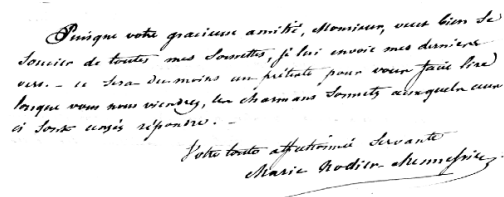 Puisque votre gracieuse amitié, Monsieur, veut bien se
soucier de toutes mes Sornettes, je lui envoie mes derniers
vers. – ce sera du moins un prétexte pour vous faire lire
lorsque vous nous viendrez, les charmans Sonnets auxquels ceux
ci sont censés répondre. –
Votre toute affectionnée Servante
Marie Nodier Mennessier